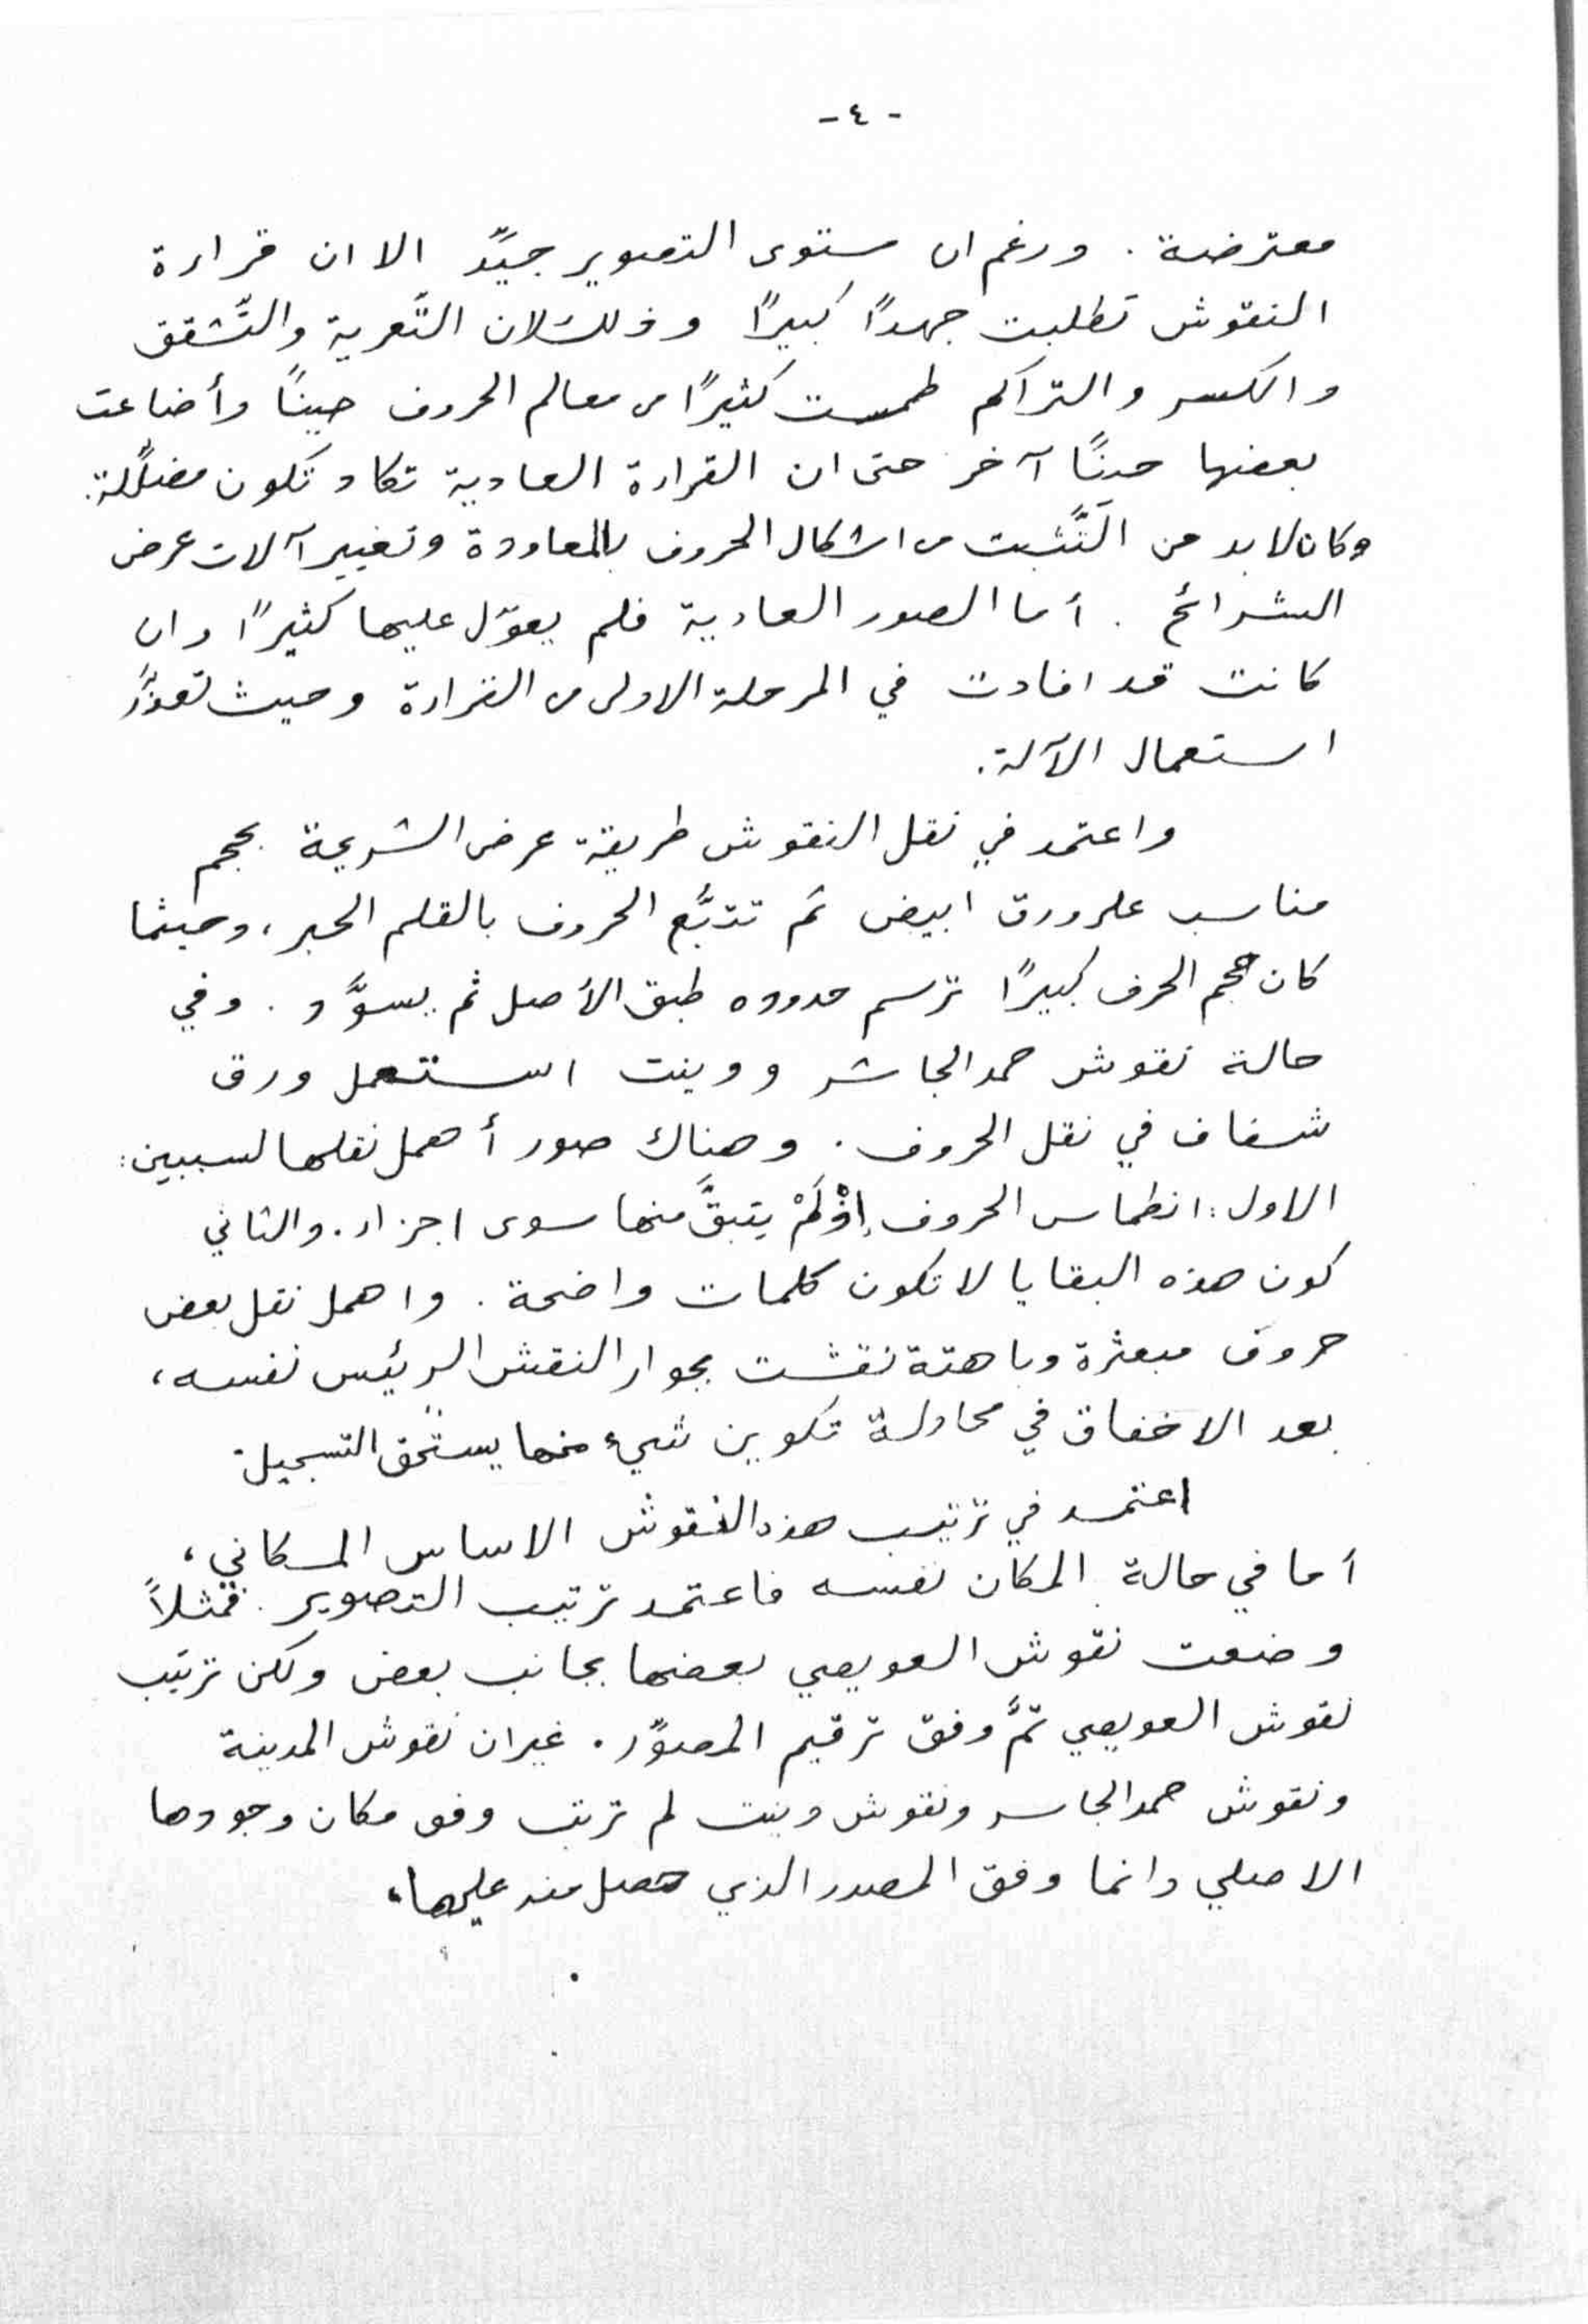 - ٤ -
معترضة . ورغم ان مستوى التصوير جيّد الا ان قراءة
النقوش تطلبت جهداً كبيراً وذلك لان التَّعرية والتَّشقق
والكسر والتراكم طمست كثيرًا من معالم الحروف حينًا وأضاعت
بعضها حينًا آخر حتى ان القراءة العادية تكاد تكون مضلِّلة.
وكان لا بد من التَّثبت من اشكال الحروف بالمعاودة وتغيير آلات عرض
الشرائح . أما الصور العادية فلم يعوّل عليها كثيرًا وان
كانت قد افادت في المرحلة الاولى من القراءة وحيث تعذَّر
استعمال الآلة.
واعتمد في نقل النقوش طريقة عرض الشريحة بحجم
مناسب على ورق ابيض ثم تتبَّع الحروف بالقلم الحبر، وحيثما
كان حجم الحرف كبيرًا ترسم حدوده طبق الأصل ثم يسوَّد . وفي
حالة نقوش حمد الجاسر ووينت استعمل ورق
شفاف في نقل الحروف . وهناك صور أهمل نقلها لسببين:
الاول: انطماس الحروف إذْ لَمْ يتبقَّ منها سوى اجزاء. والثاني
كون هذه البقايا لا تكون كلمات واضحة . واهمل نقل بعض
حروف مبعثرة وباهتة نقشت بجوار النقش الرئيس نفسه،
بعد الاخفاق في محاولة تكوين شيء منها يستحق التسجيل.
اعتمد في ترتيب هذه النقوش الاساس المكاني،
أما في حالة المكان نفسه فاعتمد ترتيب التصوير. فمثلاً
وضعت نقوش العويصي بعضها بجانب بعض ولكن ترتيب
نقوش العويصي تمَّ وفق ترقيم المصوِّر . غير ان نقوش المدينة
ونقوش حمد الجاسر ونقوش وينت لم ترتب وفق مكان وجودها
الاصلي وانما وفق المصدر الذي حصل منه عليها.